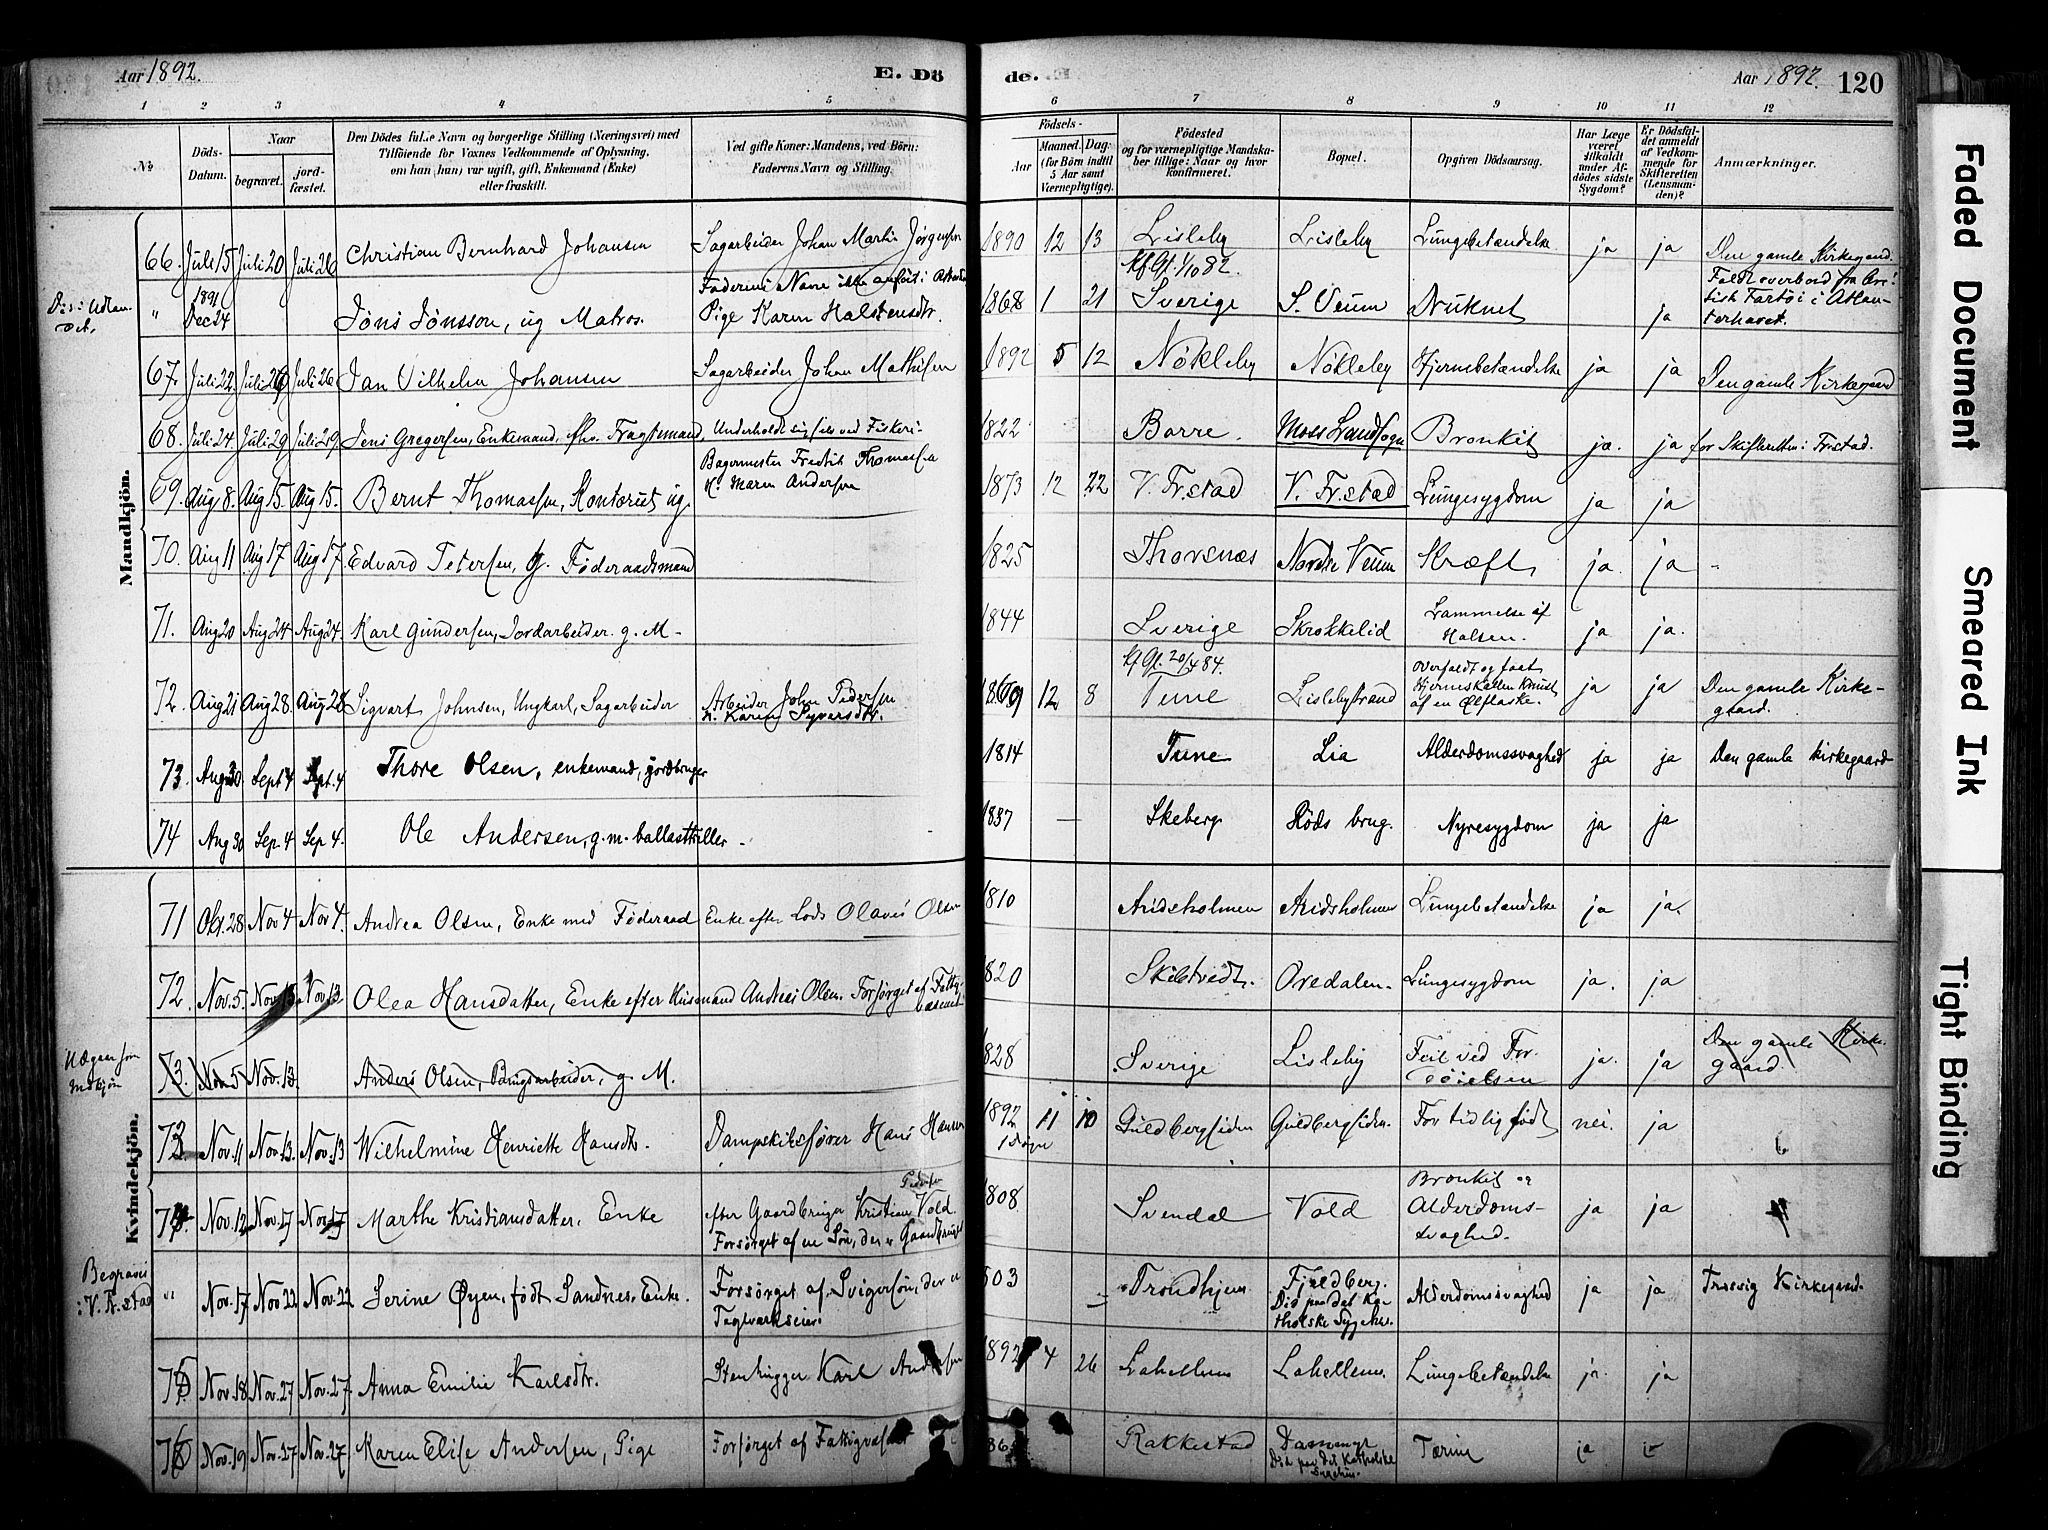 Aar 1892. E. Dö de. Aar 1892. 120
1 2 3 4 5 6 7 8 9 10 11 12
No. Döds-Datum. Naar begravet. jordfæstet. Den Dödes fulde Navn og borgerlige Stilling (Næringsvei) med Tilföiende for Voxnes Vedkommende af Oplysning, om han (hun) var ugift, gift, Enkemand (Enke) eller fraskilt. Ved gifte Koner: Mandens, ved Börn: Faderens Navn og Stilling. Födsels- Aar Maaned. Dag. (for Börn indtil 5 Aar samt Værnepligtige). Födested og for værnepligtige Mandskaber tillige: Naar og hvor konfirmeret. Bopæl. Opgiven Dödsaarsag. Har Læge været tilkaldt under Afdödes sidste Sygdom? Er Dödsfaldet anmeldt af Vedkommende for Skifteretten (Lensmanden)? Anmærkninger.
Mandkjön.
66. Juli 15 Juli 20 Juli 26 Christian Bernhard Johansen Sagarbeider Johan Martin Jörgensen 1890 12 13 Lisleby Lisleby Lungebetændelse ja ja Den gamle Kirkegaard.
" 1891 Dec 24 Jöns Jönsson, ug Matros. Faderens Navn ikke anført i Pige Karen Halstensdtr. 1868 1 21 Kf Gl. 1/10 82. Sverige S. Veum Druknet ja Faldt overbord fra Fartöi i Atlanterhavet.
67. Juli 22. Juli 26 Juli 26. Jan Vilhelm Johansen Sagarbeider Johan Mathisen 1892 5 12 Nökleby Nökleby Hjernebetændelse ja ja Den gamle Kirkegaard
68. Juli 24 Juli 29 Juli 29. Jens Gregersen, Enkemand, fhv. Fragtemand, Underholdt sig selv ved Fiskeri. 1822 Borre. Moss Landsogn Bronkit ja. ja for Skifteretten i Fr.stad.
69. Aug 8. Aug 15. Aug 15. Bernt Thomassen, Kontorist ug. Bagermester Fredrik Thomassen H. Maren Andersen 1873 12 22 V. Fr.stad V. Fr.stad Lungesygdom ja ja
70. Aug 11 Aug 17 Aug 17. Edvard Petersen, g. Föderaadsmand 1825 Thorsnæs Nordre Veum Kræft ja ja
71. Aug 20 Aug 24 Aug 24. Karl Gundersen, Jordarbeider. g. M. 1844 Sverige Skrokkelid Lammelse af Halsen. ja ja.
72. Aug 21 Aug 28. Aug 28 Sigvart Johnsen, Ungkarl, Sagarbeider Arbeider John Pedersen H. Karen Syversdtr. 1869 12 8 Kf Gl. 20/4 84. Tune Lislebystrand Overfaldt og faat Hjerneskallen knust af en Ølflaske. ja ja Den gamle Kirkegaard.
73. Aug 30 Sept 4 Sept. 4 Thore Olsen, enkemand, jordbruger 1814 Tune Lia Alderdomssvaghed ja ja Den gamle kirkegaard
74 Aug 30 Sep. 4 Sep 4. Ole Andersen, g. m. ballastkjeller. 1837 — Skeberg Röds brug. Nyresygdom ja ja
Kvindekjön.
71 Okt. 28 Nov 4 Nov 4. Andrea Olsen, Enke med Föderaad Enke efter Lods Olaves Olsen 1810 Arisholmen Arisholmen Lungebetændelse ja ja.
72. Nov. 5. Nov. 13. Nov 13 Olea Hansdatter, Enke efter Husmand Andreas Olsen. Forsörget af Fattigvæsenet 1820 Skibtvedt. Oredalen. Lungesygdom ja. ja
73. Nov. 5 Nov. 13. Anders Olsen, Brugsarbeider, g. M. 1828 Sverige Lisleby Feil ved Fordöielsen ja. ja Den gamle Kirkegaard.
73. Nov. 11 Nov. 13. Nov. 13 Wilhelmine Henriette Hansdtr. Dampskibsförer Hans Hansen 1892 11 10 1 Dögn Guldbergsiden Guldbergsiden. For tidlig födt nei. ja
74. Nov. 12 Nov. 17 Nov. 17 Marthe Kristiansdatter, Enke efter Gaardbruger Kristian Vold. Forsörget af en Sön, der er Gaardbruger 1808 Svendal Vold Bronkit og Alderdomssvaghed. ja ja
" Nov. 17 Nov. 22 Nov. 22 Serine Øyen, födt Sandnes, Enke. Forsörget af Svigersön, der er Teglværkseier. 1803 Trondhjem Fjeldberg. Död paa det Katholske Sygehus. Alderdomssvaghed ja ja Trosvig Kirkegaard.
75 Nov. 18 Nov. 27 Nov. 27. Anna Emilie Karlsdtr. Stenhugger Karl Andersen 1892 4 26 Lahellem Lahellem. Lungebetændelse ja. ja
76 Nov. 19 Nov. 27 Nov. 27 Karen Elise Andersen, Pige Forsörget af Fattigvæsenet Rakkestad Död paa det Katholske Sygehus. Tæring ja
Faded Document
Smeared Ink
Tight Binding